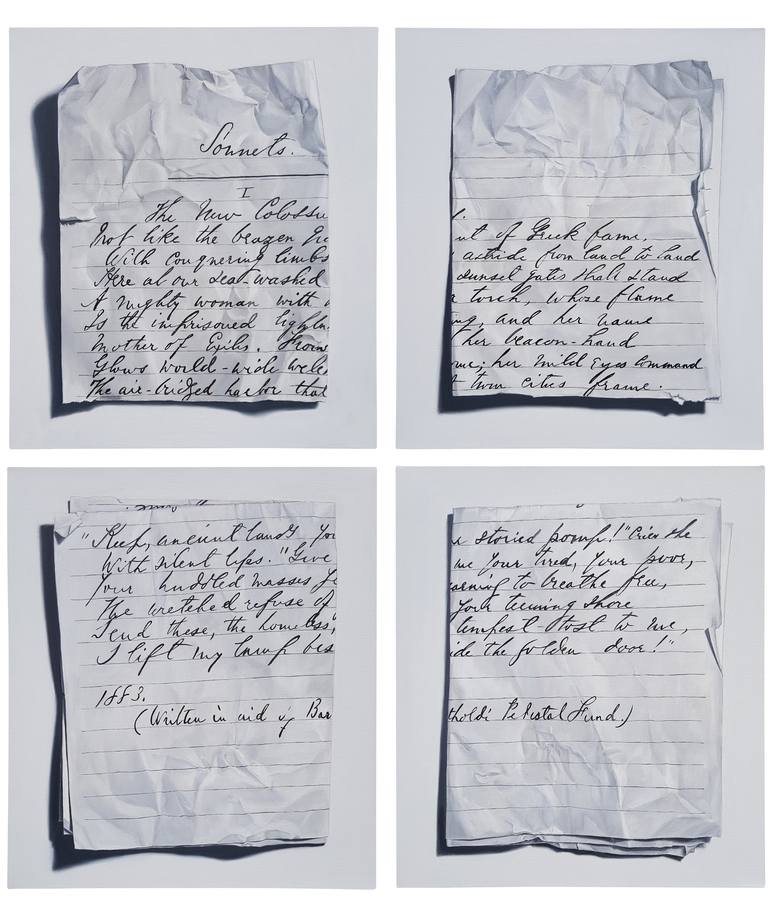 Sonnets.
I
The New Colossu
Not like the brazen Gi
With conquering limbs
Here at our sea-washed
A mighty woman with a
Is the imprisoned lightn
Mother of Exiles. From
Glows world-wide welc
The air-bridged harbor that
nt of Greek fame,
astride from land to land
sunset gates shall stand
torch, whose flame
ing, and her name
her beacon-hand
ome; her mild eyes command
t twin cities frame.
"Keep, ancient lands, you
With silent lips. "Give
Your huddled masses ye
The wretched refuse of
Send these, the homeless,
I lift my lamp bes
1883.
(Written in aid of Bar
r storied pomp!" Cries she
me your tired, your poor,
earning to breathe free,
your teeming shore
tempest tost to me,
ide the golden door!"
tholdi Pedestal Fund.)